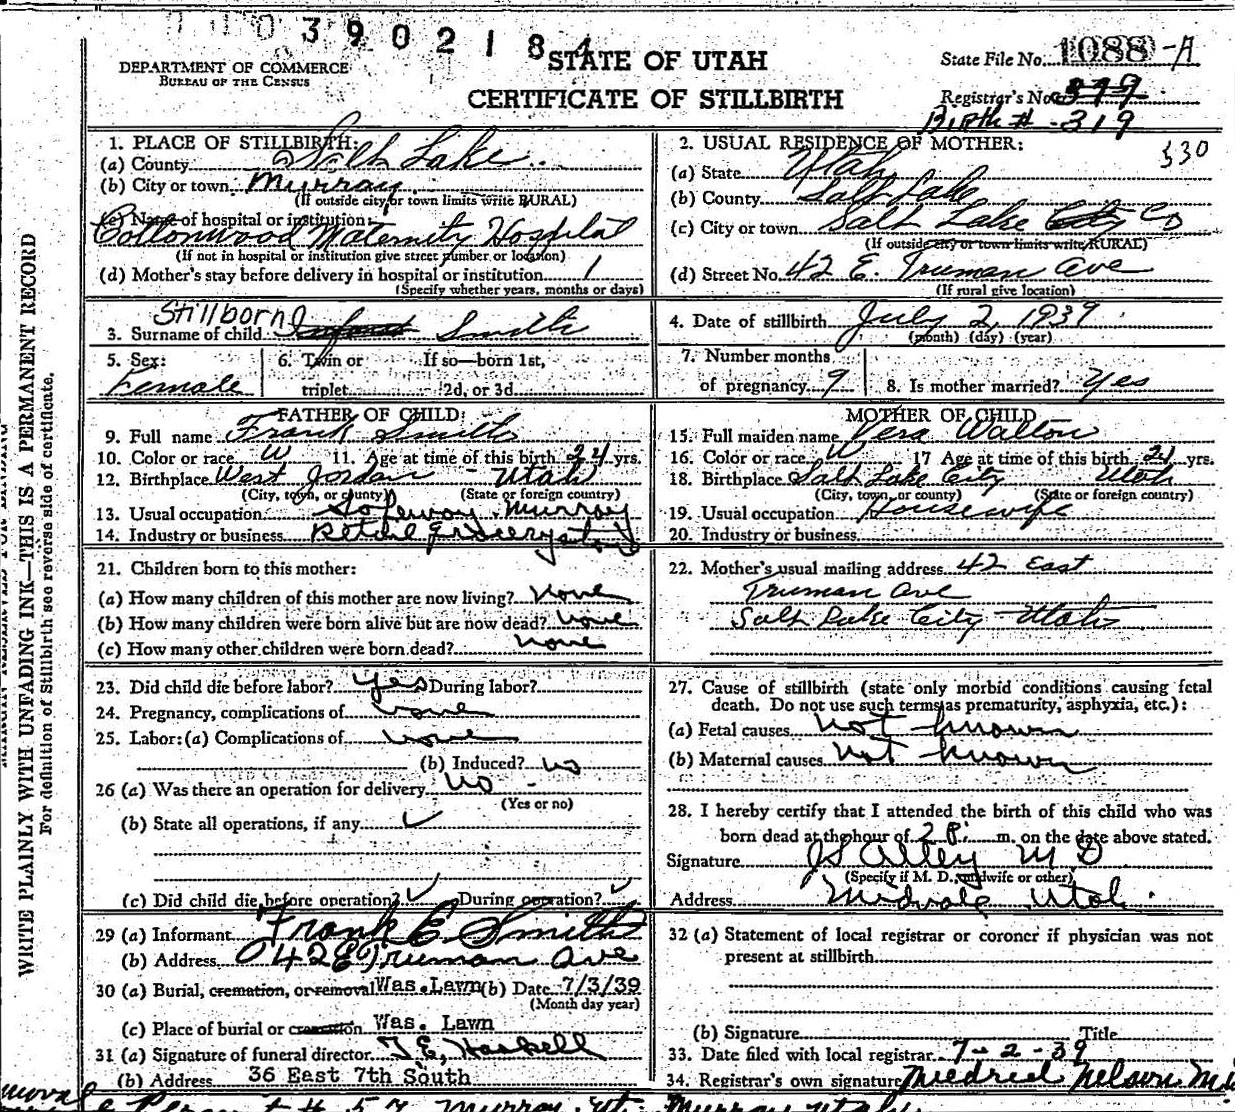 3902184
STATE OF UTAH
CERTIFICATE OF STILLBIRTH
DEPARTMENT OF COMMERCE
BUREAU OF THE CENSUS
State File No. 1088-A
Registrar's No. 379
Birth # 319
330
1. PLACE OF STILLBIRTH:
(a) County Salt Lake
(b) City or town Murray
(If outside city or town limits write RURAL)
(c) Name of hospital or institution:
Cottonwood Maternity Hospital
(If not in hospital or institution give street number or location)
(d) Mother's stay before delivery in hospital or institution 1
(Specify whether years, months or days)
2. USUAL RESIDENCE OF MOTHER:
(a) State Utah
(b) County Salt Lake
(c) City or town Salt Lake City Co
(If outside city or town limits write RURAL)
(d) Street No. 42 E. Truman Ave
(If rural give location)
Stillborn
3. Surname of child Infant Smith
4. Date of stillbirth July 2, 1939
(month) (day) (year)
5. Sex: Female
6. Twin or triplet If so—born 1st, 2d, or 3d
7. Number months of pregnancy 9
8. Is mother married? Yes
FATHER OF CHILD:
9. Full name Frank Smith
10. Color or race W 11. Age at time of this birth 24 yrs.
12. Birthplace West Jordan Utah
(City, town, or county) (State or foreign country)
13. Usual occupation Safeway Murray
14. Industry or business Retail Grocery store
MOTHER OF CHILD
15. Full maiden name Vera Walton
16. Color or race W 17 Age at time of this birth 21 yrs.
18. Birthplace Salt Lake City Utah
(City, town, or county) (State or foreign country)
19. Usual occupation Housewife
20. Industry or business
21. Children born to this mother:
(a) How many children of this mother are now living? none
(b) How many children were born alive but are now dead? none
(c) How many other children were born dead? none
22. Mother's usual mailing address 42 East
Truman Ave
Salt Lake City Utah
23. Did child die before labor? yes During labor?
24. Pregnancy, complications of none
25. Labor: (a) Complications of none
(b) Induced? no
26 (a) Was there an operation for delivery no
(Yes or no)
(b) State all operations, if any ✓
(c) Did child die before operation? ✓ During operation? ✓
27. Cause of stillbirth (state only morbid conditions causing fetal
death. Do not use such terms as prematurity, asphyxia, etc.):
(a) Fetal causes not known
(b) Maternal causes not known
28. I hereby certify that I attended the birth of this child who was
born dead at the hour of 2 P. m. on the date above stated.
Signature JS Alley M D
(Specify if M. D., midwife or other)
Address Midvale Utah
29 (a) Informant Frank E. Smith
(b) Address 42 E Truman Ave
30 (a) Burial, cremation, or removal Was. Lawn (b) Date 7/3/39
(Month day year)
(c) Place of burial or cremation Was. Lawn
31 (a) Signature of funeral director T. E. Haskell
(b) Address 36 East 7th South
32 (a) Statement of local registrar or coroner if physician was not
present at stillbirth
(b) Signature Title
33. Date filed with local registrar 7-2-39
34. Registrar's own signature Mildred Nelson
WRITE PLAINLY WITH UNFADING INK—THIS IS A PERMANENT RECORD
For definition of Stillbirth see reverse side of certificate.
# 57 Murray, Ut. Murray Utah